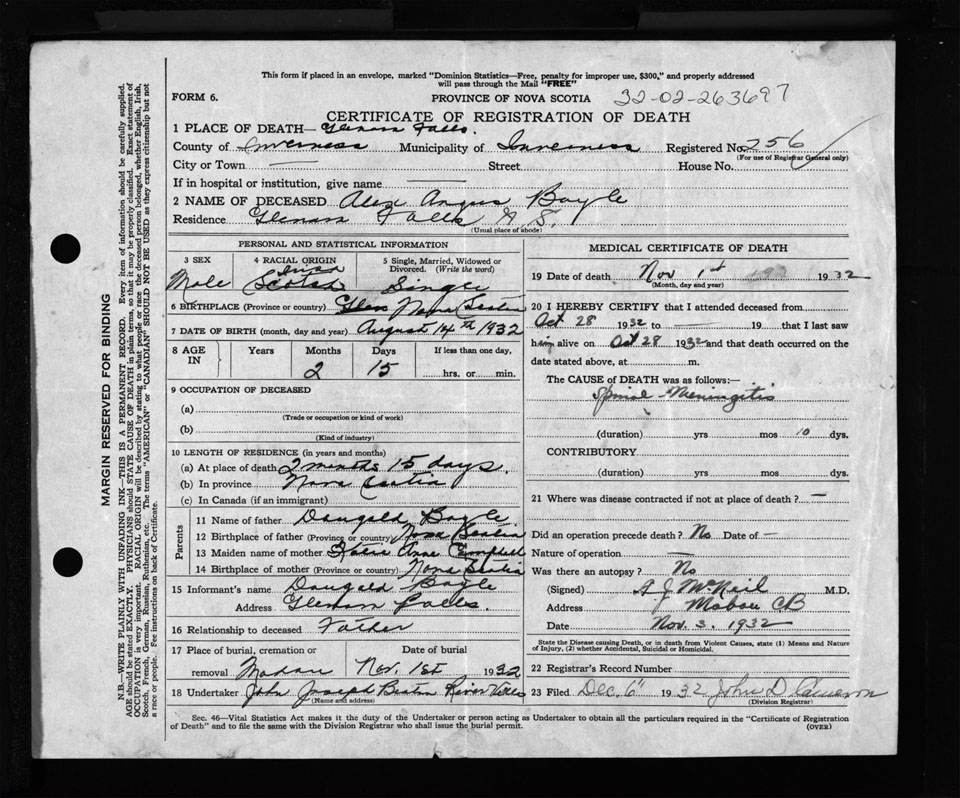 This form if placed in an envelope, marked "Dominion Statistics—Free, penalty for improper use, $300," and properly addressed
will pass through the Mail "FREE"
FORM 6.
PROVINCE OF NOVA SCOTIA
32-02-263697
CERTIFICATE OF REGISTRATION OF DEATH
1 PLACE OF DEATH— Falls.
County of Inverness Municipality of Inverness Registered No. 256
(For use of Registrar General only)
City or Town — Street House No.
If in hospital or institution, give name —
2 NAME OF DECEASED Alex Angus Boyle
Residence Falls N S.
(Usual place of abode)
PERSONAL AND STATISTICAL INFORMATION
3 SEX 4 RACIAL ORIGIN 5 Single, Married, Widowed or Divorced. (Write the word)
Male Scotch Single
6 BIRTHPLACE (Province or country) Nova Scotia
7 DATE OF BIRTH (month, day and year) August 14th 1932
8 AGE IN Years Months Days If less than one day,
2 15 hrs. or min.
9 OCCUPATION OF DECEASED
(a)
(Trade or occupation or kind of work)
(b)
(Kind of industry)
10 LENGTH OF RESIDENCE (in years and months)
(a) At place of death 2 months 15 days.
(b) In province Nova Scotia
(c) In Canada (if an immigrant)
Parents
11 Name of father Dougald Boyle
12 Birthplace of father (Province or country) Nova Scotia
13 Maiden name of mother Katie Anne Campbell
14 Birthplace of mother (Province or country) Nova Scotia
15 Informant's name Dougald Boyle
Address Falls.
16 Relationship to deceased Father
17 Place of burial, cremation or removal Date of burial
Mabou Nov. 1st 1932
18 Undertaker John Joseph Beaton River
(Name and address)
MEDICAL CERTIFICATE OF DEATH
19 Date of death Nov 1st 1932
(Month, day and year)
20 I HEREBY CERTIFY that I attended deceased from
Oct 28 1932 to — 19 that I last saw
him alive on Oct 28 1932 and that death occurred on the
date stated above, at m.
The CAUSE OF DEATH was as follows:—
Spinal Meningitis
(duration) yrs mos 10 dys.
CONTRIBUTORY
(duration) yrs mos dys.
21 Where was disease contracted if not at place of death? —
Did an operation precede death? No Date of —
Nature of operation —
Was there an autopsy? No
(Signed) A J McNeil M.D.
Address Mabou CB
Date Nov. 3. 1932
State the Disease causing Death, or in death from Violent Causes, state (1) Means and Nature
of Injury, (2) whether Accidental, Suicidal or Homicidal.
22 Registrar's Record Number
23 Filed Dec. 6" 1932 John D Cameron
(Division Registrar)
Sec. 46—Vital Statistics Act makes it the duty of the Undertaker or person acting as Undertaker to obtain all the particulars required in the "Certificate of Registration
of Death" and to file the same with the Division Registrar who shall issue the burial permit.
(OVER)
MARGIN RESERVED FOR BINDING
N.B.—WRITE PLAINLY WITH UNFADING INK—THIS IS A PERMANENT RECORD. Every item of information should be carefully supplied.
AGE should be stated EXACTLY. PHYSICIANS should STATE CAUSE OF DEATH in plain terms, so that it may be properly classified. Exact statement of
OCCUPATION is very important. RACIAL ORIGIN will be described by stating to what people or race the deceased person belonged, whether English, Irish,
Scotch, French, German, Russian, Ruthenian, etc. The terms "AMERICAN" or "CANADIAN" SHOULD NOT BE USED as they express citizenship but not
a race or people. Fee instructions on back of Certificate.